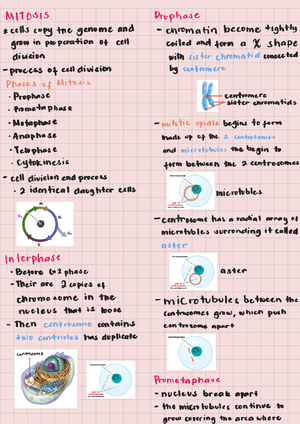 MITOSIS
* cells copy the genome and
grow in preperation of cell
division
- process of cell division
Phases of Mitosis
• Prophase
• Prometaphase
• Metaphase
• Anaphase
• Telophase
• Cytokinesis
- cell division end process
• 2 identical daughter cells
Interphase
• Before G2 phase
- Their are 2 copies of
chromosome in the
nucleus that is loose
- Then centrosome contains
two centrioles has duplicate
centrosome
Prophase
- chromatin become tightly
coiled and form a X shape
with sister chromatid connected
by centromere
centromere
sister chromatids
- mitotic spindle begins to form
made up of the 2 centrosomes
and microtubules the begin to
form between the 2 centrosomes
microtubles
- centrosome has a radial array of
microtubles surronding it called
aster
aster
- microtubules between the
centrosomes grow, which push
centrosome apart
Prometaphase
- nucleus break apart
- the microtubules continue to
grow covering the area where